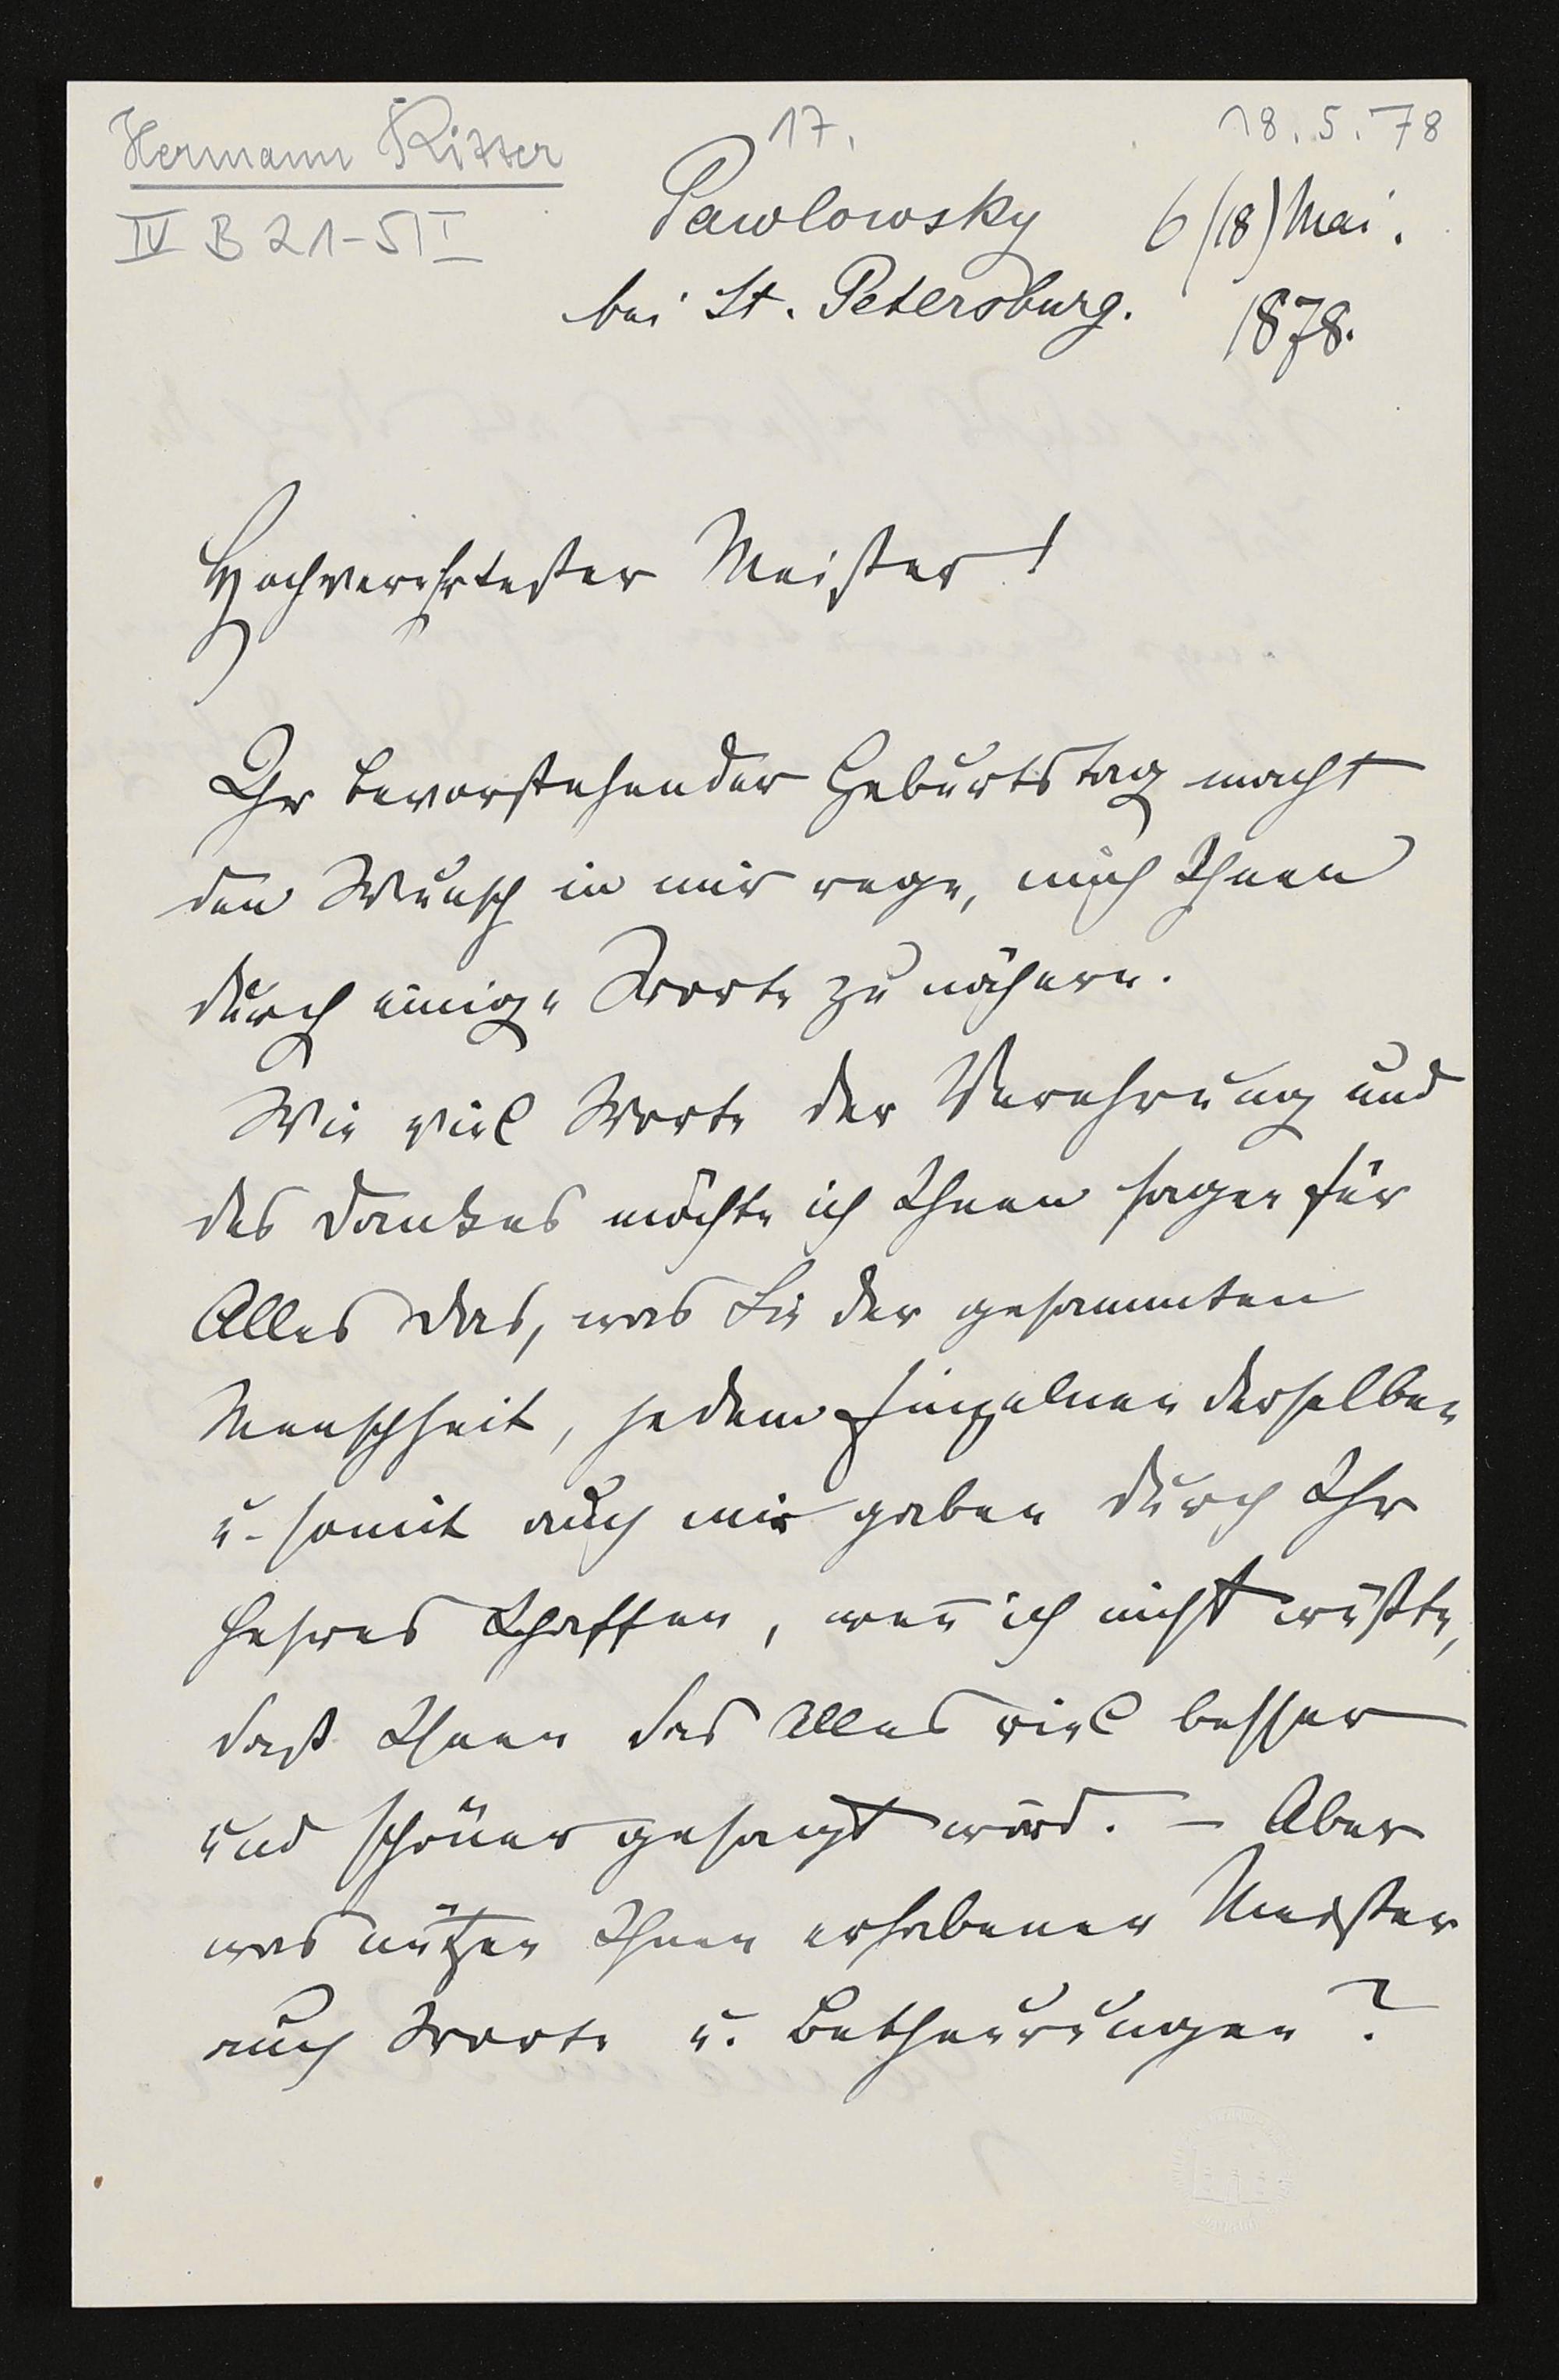 Hermann Ritter
17.
18.5.78
IV B 21-5 I
Pawlowsky 6/(18) Mai.
bei St. Petersburg. 1878.
Hochverehrtester Meister!
Ihr bevorstehender Geburtstag macht
den Wunsch in mir rege, mich Ihnen
durch einige Worte zu nähern.
Wie viel Worte der Verehrung und
des Dankes möchte ich Ihnen sagen für
Alles das, was Sie der gesammten
Menschheit, jedem Einzelnen derselben
u. somit auch mir gaben durch Ihr
hehres Schaffen, wen̄ ich nicht wüßte,
daß Ihnen das Alles viel besser
und schöner gesagt wird. – Aber
was nützen Ihnen erhabener Meister
auch Worte u. Betheurungen?